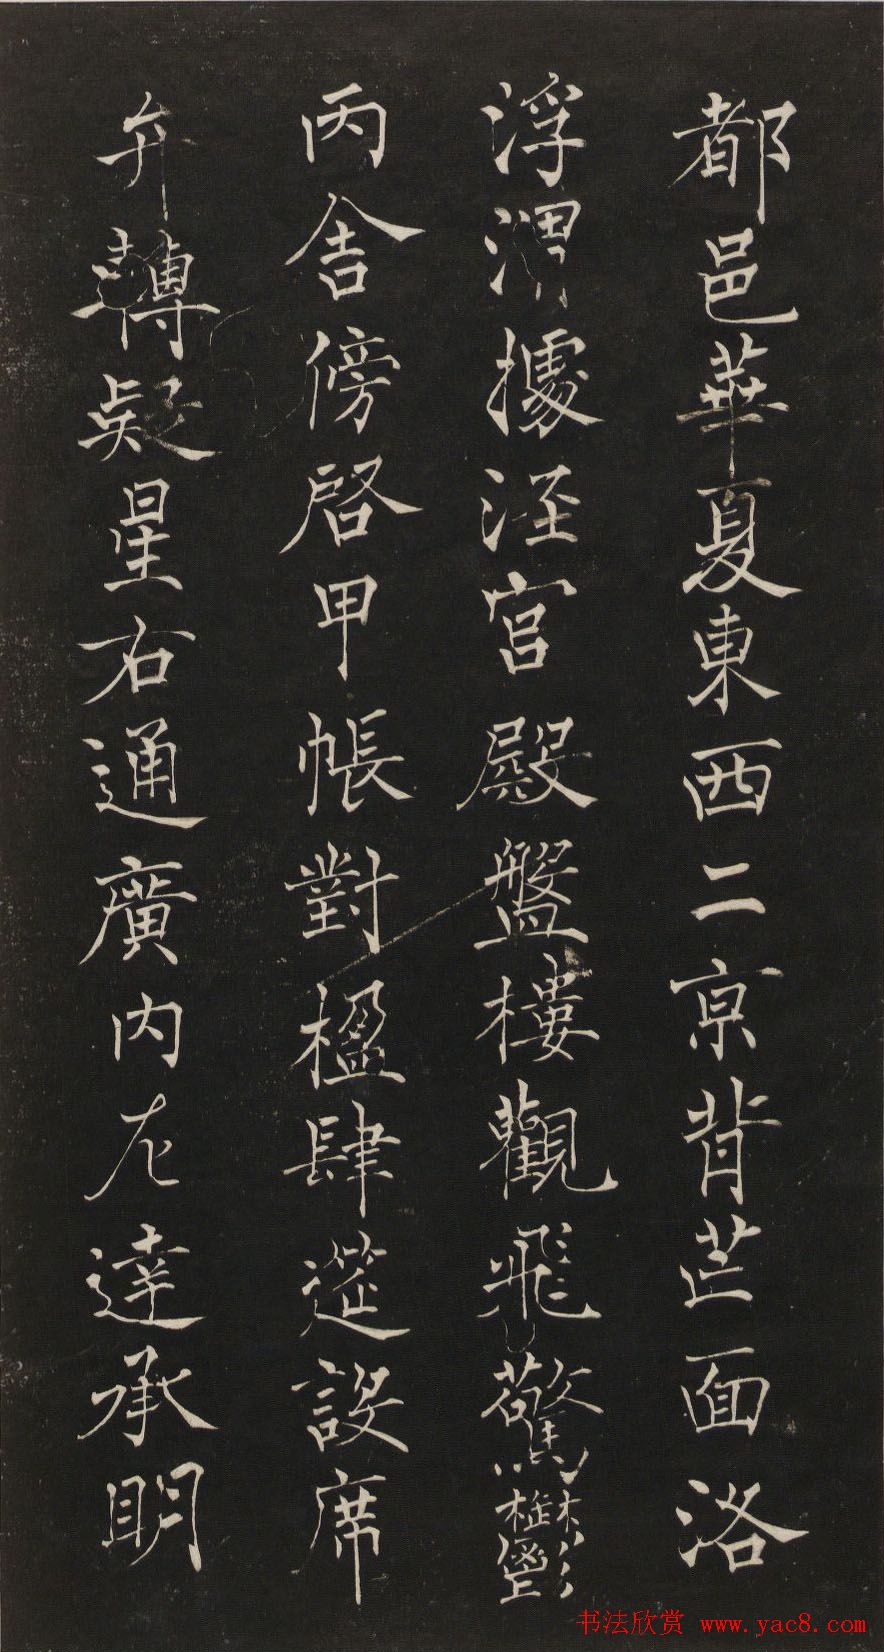 都邑華夏東西二京背芒面洛
浮渭據涇宮殿盤樓觀飛驚鬱
丙舍傍啓甲帳對楹肆筵設席
弁轉疑星右通廣內左達承明
书法欣赏 www.yac8.com